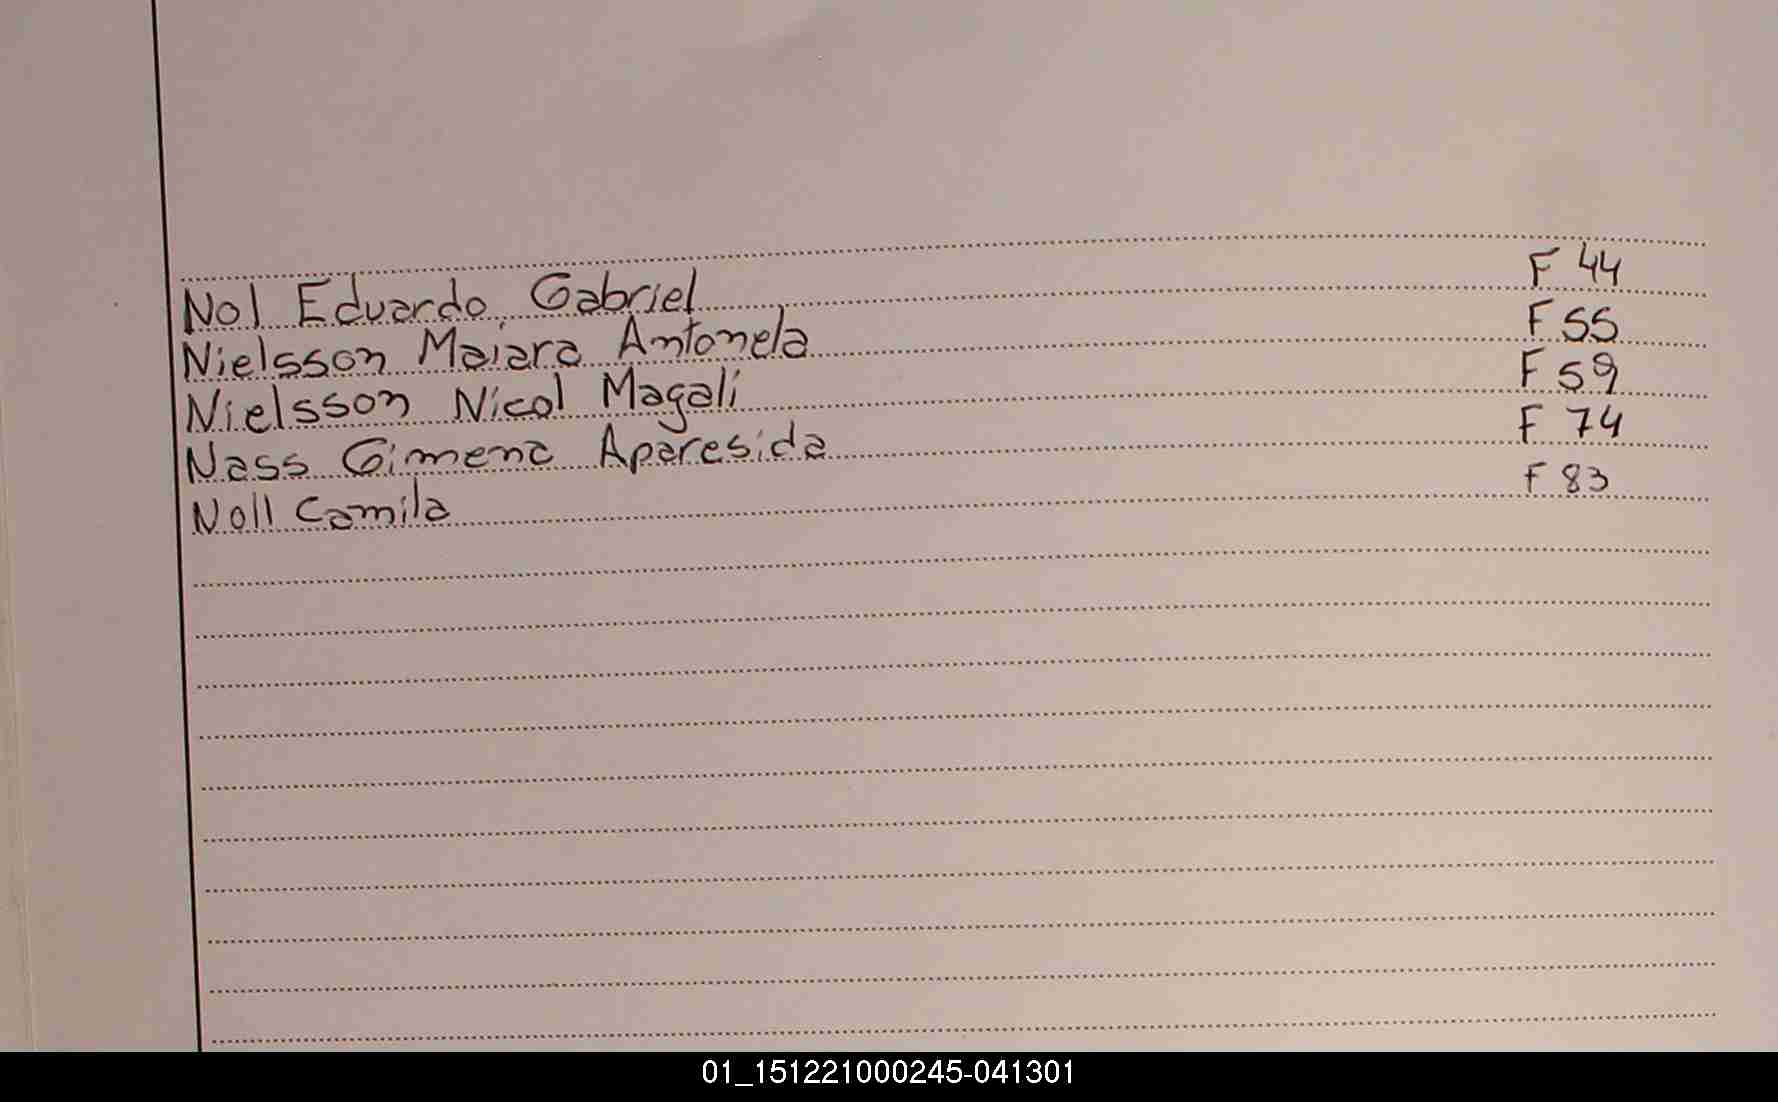 Nol Eduardo, Gabriel F 44
Nielsson Maiara Antonela F 55
Nielsson Nicol Magali F 59
Nass Gimena Aparesida F 74
Noll Camila F 83
01_151221000245-041301